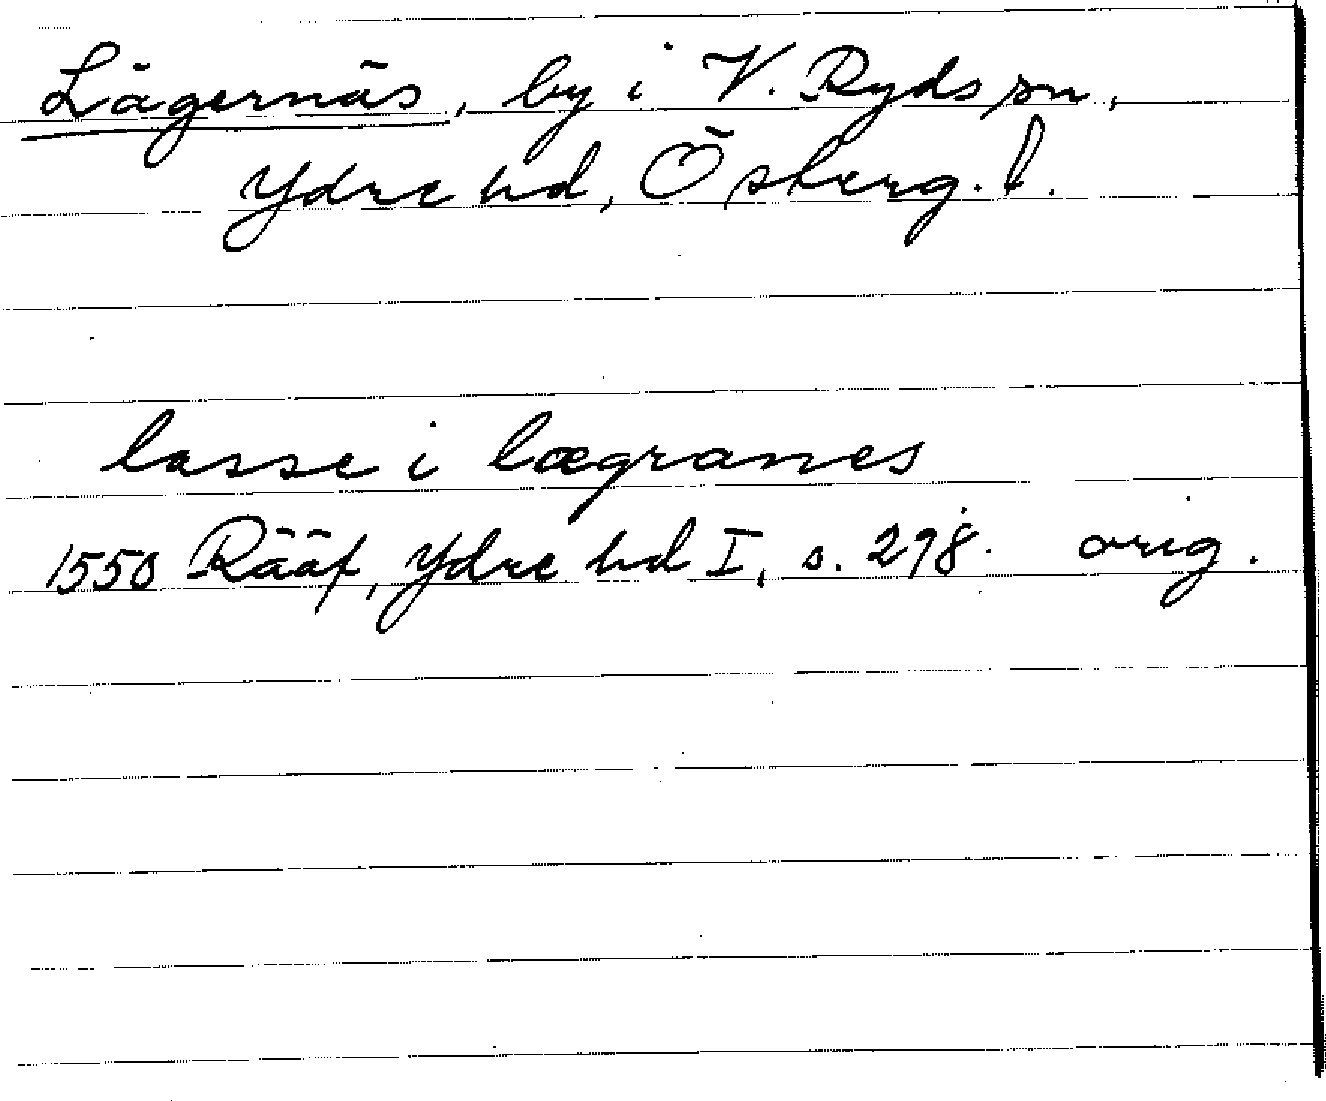 Lägernäs, by i V. Ryds sn,
Ydre hd, Ösberg. l.
lasse i lægranes
1550 Rääf, Ydre hd I, s. 298. orig.